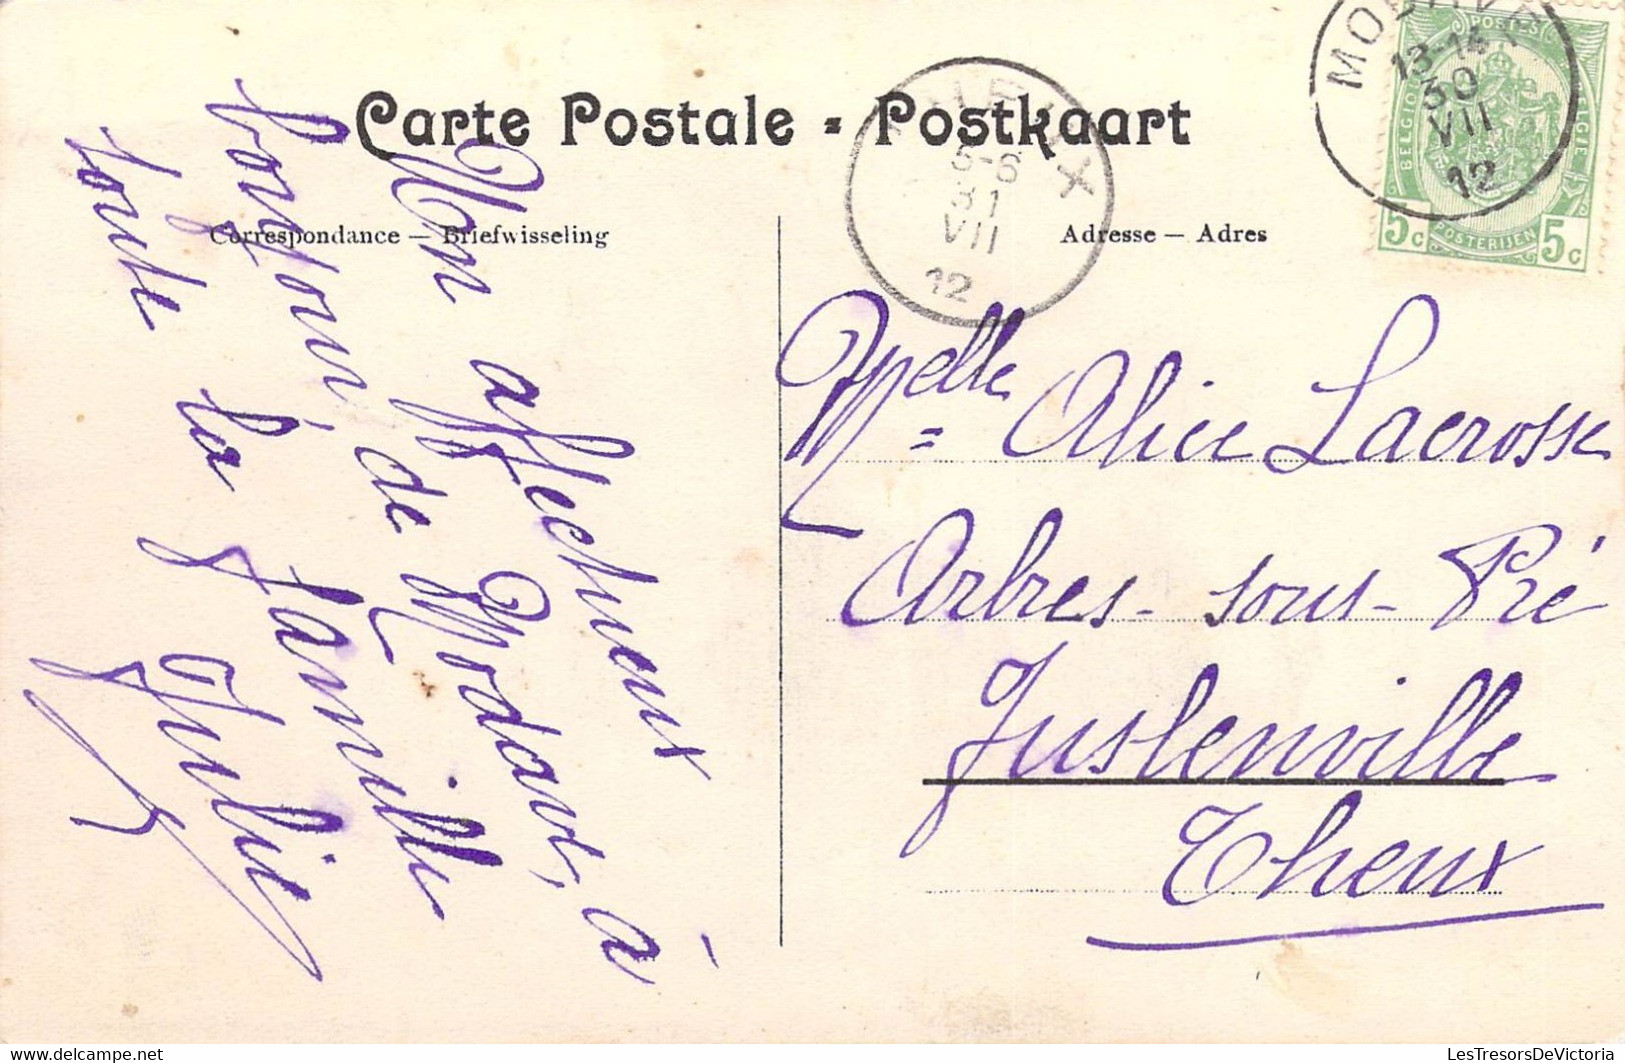 Carte Postale - Postkaart
Correspondance — Briefwisseling
Adresse — Adres
Un affectueux
bonjour de Modave, à
toute la famille
Julie
THEUX
5-6
31
VII
12
13-14
30
VII
12
POSTES
BELGIQUE
BELGIE
5c POSTERIJEN 5c
Melle Alice Lacrosse
Arbres-sous-Pré
Juslenville
Theux
LesTresorsDeVictoria